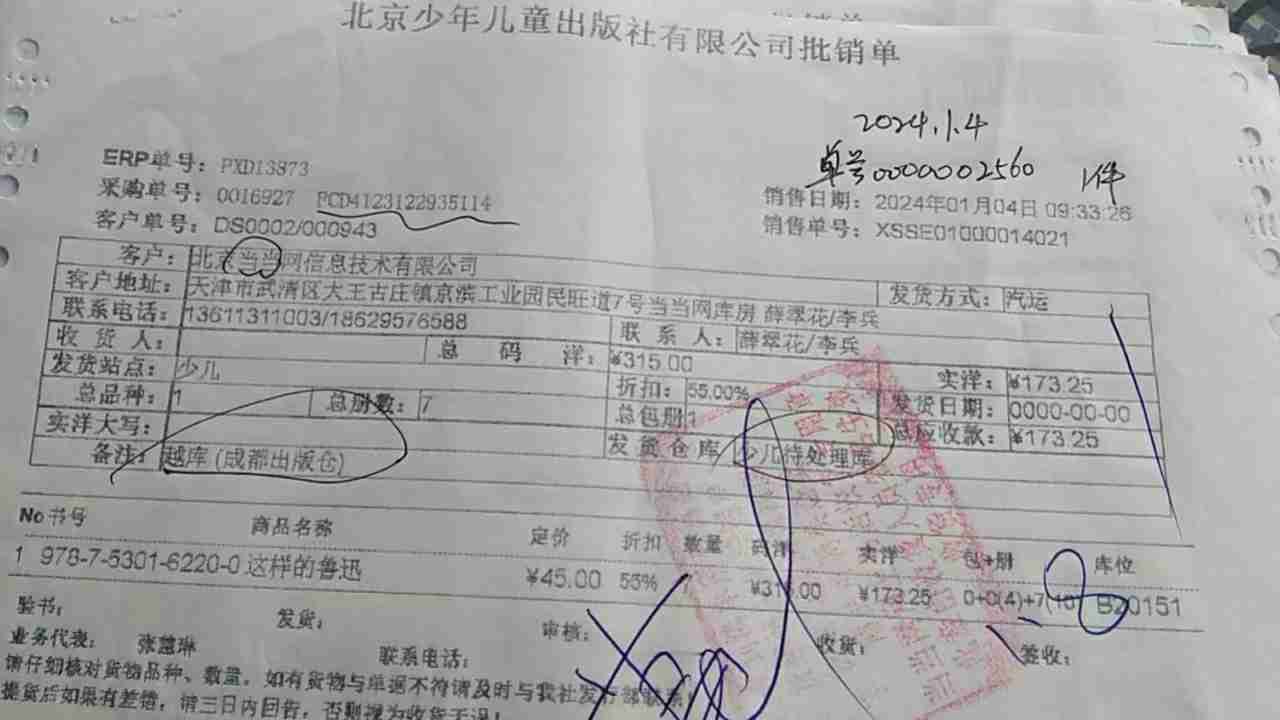 北京少年儿童出版社有限公司批销单
2024.1.4
单号0000002560 1件
ERP单号：PXD13873
采购单号：0016927 PCD4123122935114
销售日期：2024年01月04日 09:33:26
客户单号：DS0002/000943
销售单号：XSSE01000014021
客户：北京当当网信息技术有限公司
客户地址：天津市武清区大王古庄镇京滨工业园民旺道7号当当网库房 薛翠花/李兵 发货方式：汽运
联系电话：13611311003/18629576588 联系人：薛翠花/李兵
收货人： 总码洋：¥315.00 实洋：¥173.25
发货站点：少儿 折扣：55.00% 发货日期：0000-00-00
总品种：1 总册数：7 总包册1 总应收款：¥173.25
实洋大写： 发货仓库 少儿待处理库
备注：越库 (成都出版仓)
No书号 商品名称 定价 折扣 数量 码洋 实洋 包+册 库位
1 978-7-5301-6220-0 这样的鲁迅 ¥45.00 55% ¥315.00 ¥173.25 0+0(4)+7(10) B20151
验书： 发货： 审核： 收货： 签收：
业务代表： 张慧琳 联系电话：
请仔细核对货物品种、数量，如有货物与单据不符请及时与我社发行部联系！
提货后如果有差错，请三日内回告，否则视为收货无误！